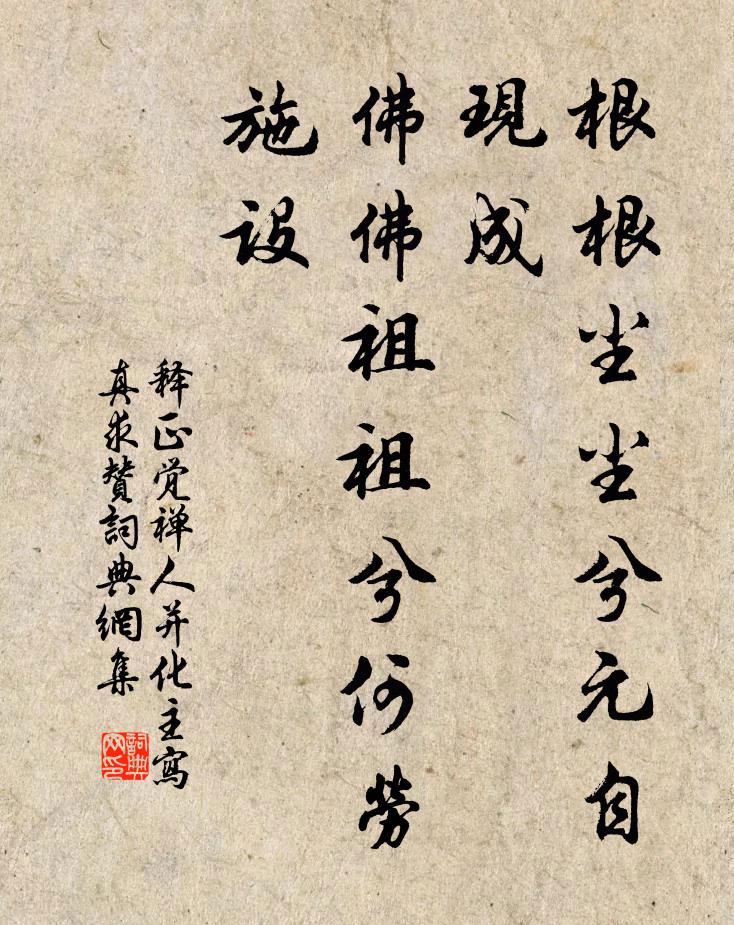 根根尘尘兮元自
現成
佛佛祖祖兮何勞
施設
释正觉禅人并化主寫
真求赞詞典網集
詞典
网印